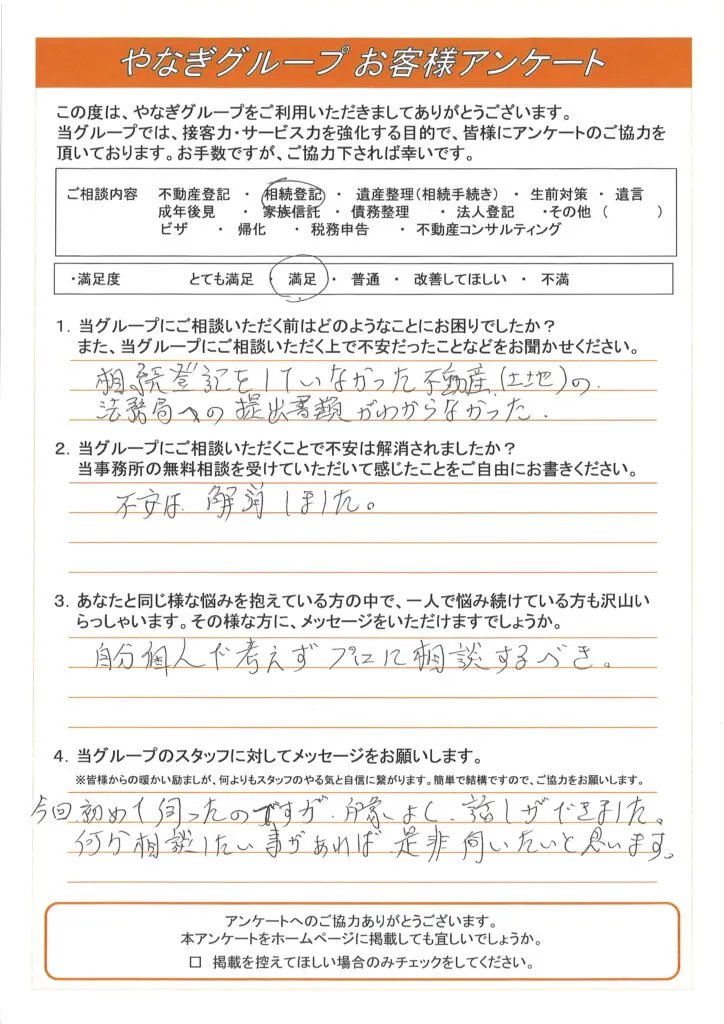 やなぎグループ お客様アンケート
この度は、やなぎグループをご利用いただきましてありがとうございます。
当グループでは、接客力・サービス力を強化する目的で、皆様にアンケートのご協力を
頂いております。お手数ですが、ご協力下されば幸いです。
ご相談内容 不動産登記 ・ 相続登記 ・ 遺産整理(相続手続き) ・ 生前対策 ・ 遺言
成年後見 ・ 家族信託 ・ 債務整理 ・ 法人登記 ・その他 ( )
ビザ ・ 帰化 ・ 税務申告 ・ 不動産コンサルティング
・満足度 とても満足 ・ 満足 ・ 普通 ・ 改善してほしい ・ 不満
1. 当グループにご相談いただく前はどのようなことにお困りでしたか?
また、当グループにご相談いただく上で不安だったことなどをお聞かせください。
相続登記をしていなかった不動産(土地)の
法務局への提出書類がわからなかった.
2. 当グループにご相談いただくことで不安は解消されましたか?
当事務所の無料相談を受けていただいて感じたことをご自由にお書きください。
不安は 解消しました。
3. あなたと同じ様な悩みを抱えている方の中で、一人で悩み続けている方も沢山い
らっしゃいます。その様な方に、メッセージをいただけますでしょうか。
自分個人で考えずプロに相談するべき。
4. 当グループのスタッフに対してメッセージをお願いします。
※皆様からの暖かい励ましが、何よりもスタッフのやる気と自信に繋がります。簡単で結構ですので、ご協力をお願いします。
今回初めて伺ったのですが、印象よく、話しができました。
何か相談したい事があれば 是非伺いたいと思います。
アンケートへのご協力ありがとうございます。
本アンケートをホームページに掲載しても宜しいでしょうか。
□ 掲載を控えてほしい場合のみチェックをしてください。